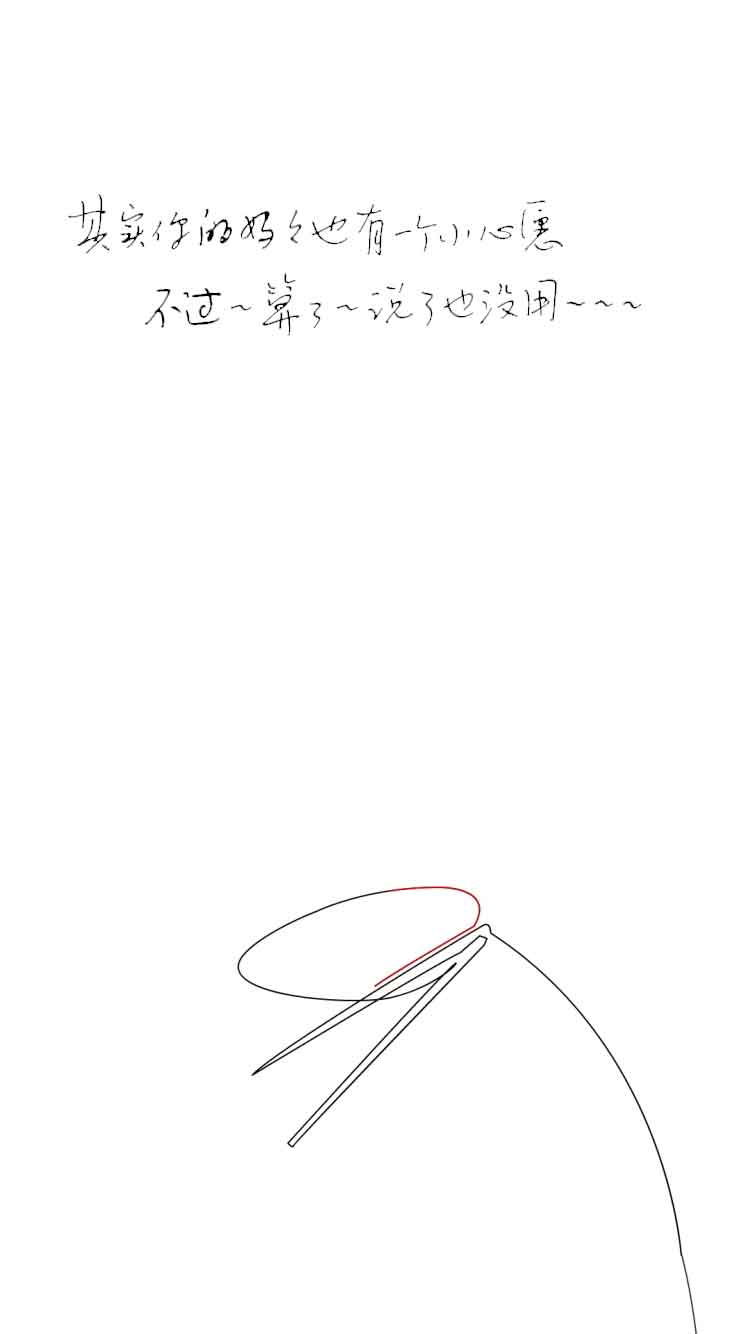 其实你的好々也有一个小心愿
不过~算了~说了也没用~~~